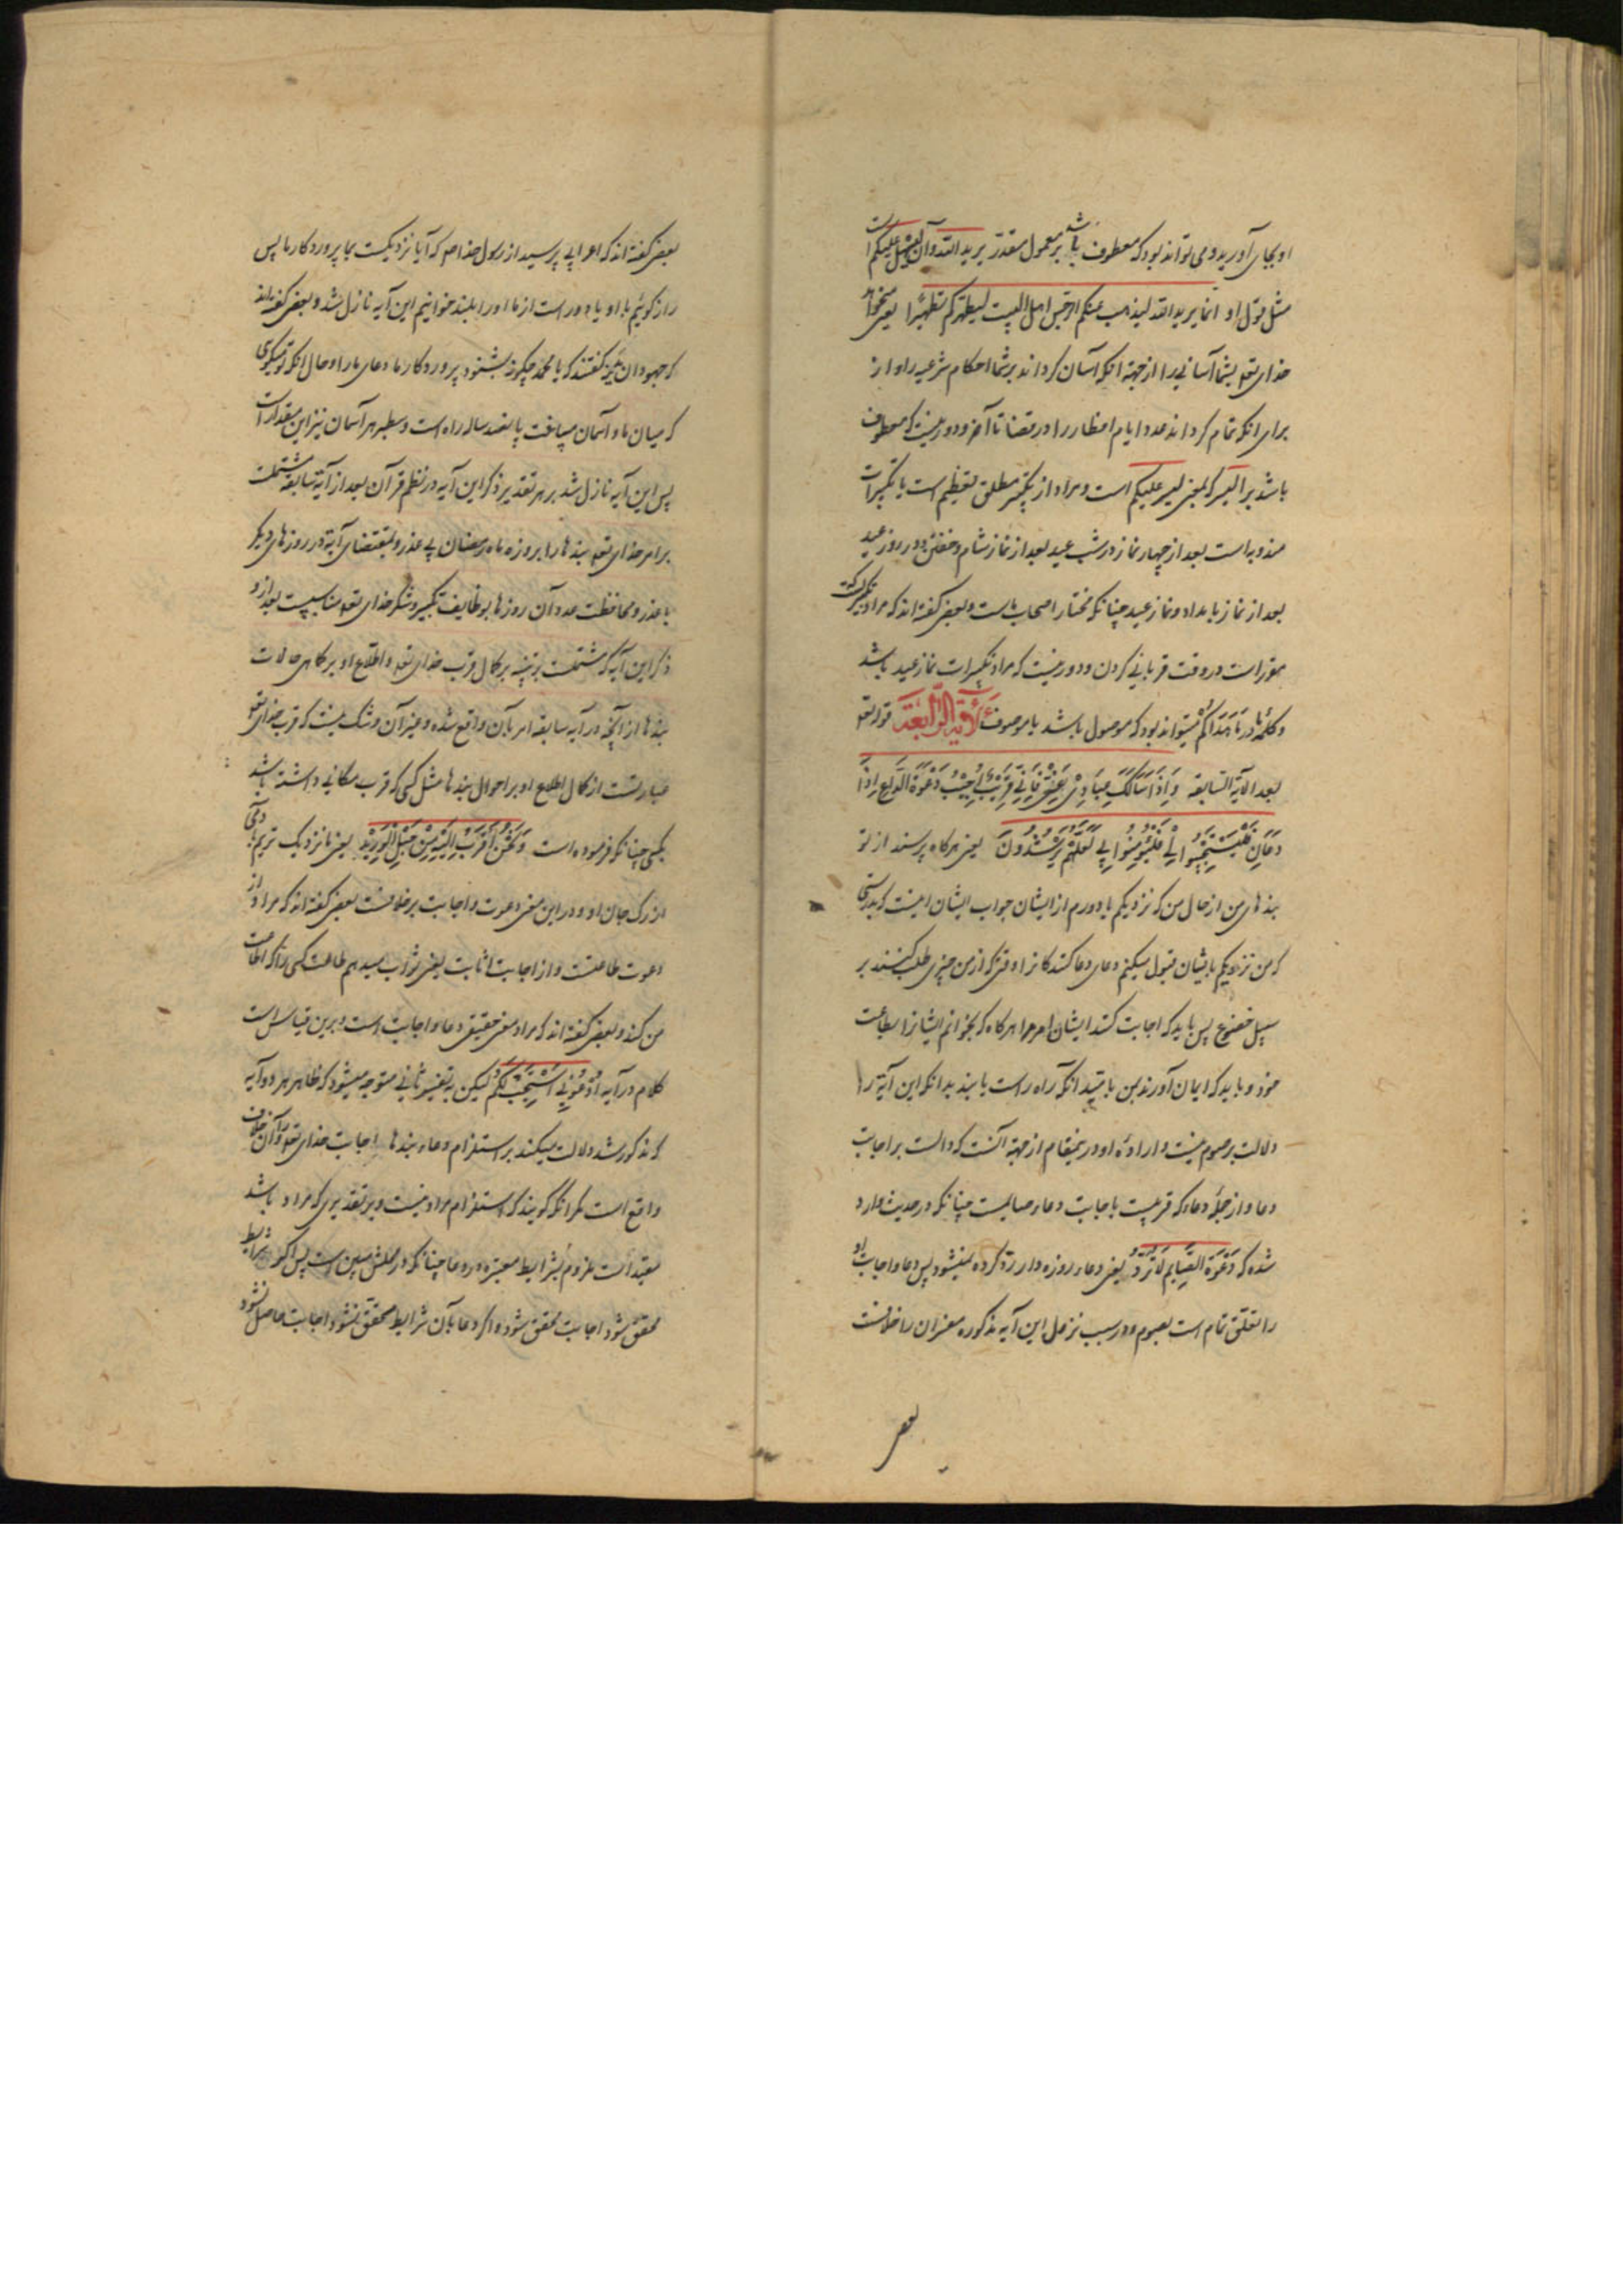 او بجای آورید و می تواند بود که معطوف باشد بر معمول مقدر یرید الله و آن لیسهل علیکم است
مثل قول او انما یرید الله لیذهب عنکم الرجس اهل البیت لیطهرکم تطهیرا یعنی میخواهد
خدای تعه بشما آسانی را از جهة انکه آسان کرداند بر شما احکام شرعیه را و از
برای انکه تمام کرداند عدد ایام افطار را در قضا تا آخر و دور نیست که معطوف
باشد بر الیسر که بمعنی لیسر علیکم است و مراد از تکبیر مطلق تعظیم است یا تکبیرات
مندوبه است بعد از چهار نماز در شب عید بعد از نماز شام و خفتن و در روز عید
بعد از نماز بامداد و نماز عید چنانکه مختار اصحاب ماست و بعضی کفته اند که مراد تکبیریست که
مقرر است در وقت قربانی کردن و دور نیست که مراد تکبیرات نماز عید باشد
و کلمهٔ ما در ما هداکم میتواند بود که موصول باشد یا موصوف الآیة الرابعة قوله تعه
بعد الآیة السابقة وَاِذَا سَاَلَکَ عِبَادِی عَنِّی فَاِنِّی قَرِیبٌ اُجِیبُ دَعْوَةَ الدَّاعِ اِذَا
دَعَانِ فَلْیَسْتَجِیبُوا لِی وَلْیُؤْمِنُوا بِی لَعَلَّهُمْ یَرْشُدُونَ یعنی هر کاه پرسند از تو
بندهای من از حال من که نزدیکم یا دورم از ایشان جواب ایشان اینست که بدرستی
که من نزدیکم بایشان قبول میکنم دعای دعا کنندکانرا وقتی که از من چیزی طلب کنند بر
سبیل خضوع پس باید که اجابت کنند ایشان امر مرا هر کاه که بخوانم ایشانرا بطاعت
خود و باید که ایمان آورند بمن بامید انکه راه راست یابند بدانکه این آیة را
دلالت بر صوم نیست و ایراد او درینمقام از جهة آنست که دالست بر اجابت
دعا و از جملهٔ دعاء که قریبست باجابت دعاء صایمست چنانکه در حدیث وارد
شده که دَعْوَةُ الصَّایِمِ لَا تُرَدُّ یعنی دعاء روزه دار رد کرده نمیشود پس دعا و اجابت او
را تعلق تمام است بصوم و در سبب نزول این آیه مذکوره مفسران را خلافست
بعضی
بعضی کفته اند که اعرابی پرسید از رسول خدا صم که آیا نزدیکست بما پروردکار ما پس
راز کوئیم با او یا دور است از ما او را بلند خوانیم این آیه نازل شد و بعضی کفته اند
که جهودان مدینه کفتند که یا محمد چکونه بشنود پروردکار ما دعای ما را و حال انکه تو میکوی
که میان ما و آسمان مسافت پانصد ساله راه است و سطبر هر آسمان نیز این مقدار است
پس این آیه نازل شد بر هر تقدیر ذکر این آیه در نظم قرآن بعد از آیة سابقه مشتملست
بر امر خدای تعه بندها را بروزه ماه رمضان بی عذر و بمقتضای آیة در روزهای دیکر
با عذر و محافظت عدد آن روزها بوظایف تکبیر و شکر خدای تعه مناسبست بعد از و
ذکر این آیه که مشتملست بر تنبیه بر کمال قرب خدای تعه و اطلاع او بر کاهی حالات
بندها از آنچه در آیه سابقه امر بآن واقع شده و غیر آن و شک نیست که قرب خدای تعه
عبارتست از کمال اطلاع او بر احوال بندها مثل کسی که قرب مکانی داشته باشد
بکسی چنانکه فرموده است وَنَحْنُ اَقْرَبُ اِلَیْهِ مِنْ حَبْلِ الْوَرِیدِ یعنی ما نزدیک تریم بآدمی
از رک جان او و در این معنی دعوت و اجابت بر خلافست بعضی کفته اند که مراد از
دعوت طاعتست و از اجابت اثابت یعنی ثواب میدهم طاعت کسی را که اطاعت
من کند و بعضی کفته اند که مراد معنی حقیقی دعا و اجابت است و برین قیاس است
کلام در آیه اُدْعُونِی اَسْتَجِبْ لَکُمْ لیکن بر تفسیر ثانی متوجه میشود که ظاهر هر دو آیه
که مذکور شد دلالت میکند بر استلزام دعاء بندها اجابت خدای تعه را و آن خلاف
واقع است مکر انکه کویند که استلزام مراد نیست و بر تقدیری که مراد باشد
مقید است ملزوم بشرایط معتبره در دعا چنانکه در محلش مبین است پس اکر شرایط
محقق شود اجابت محقق شود و اکر دعا بآن شرایط محقق نشود اجابت حاصل نشود